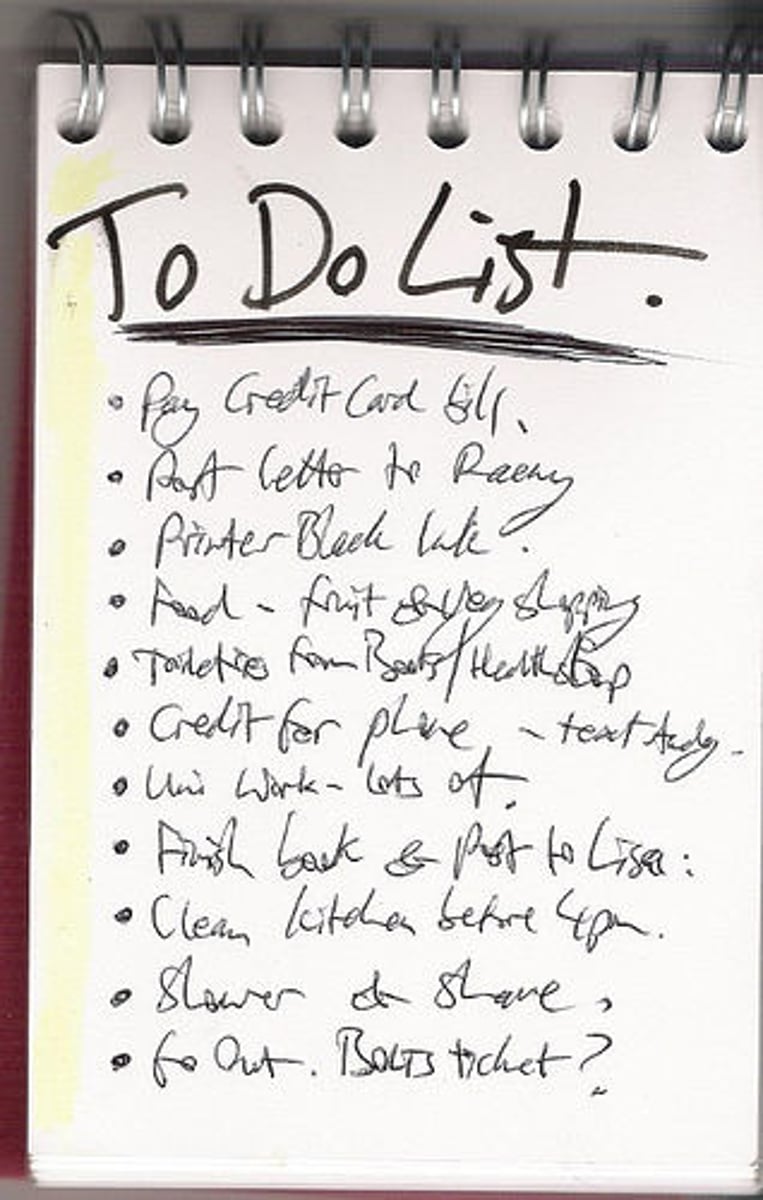 To Do List.
• Pay Credit Card bill.
• Post letter to
• Printer Black Ink.
• Food - fruit & veg shopping
• Toiletries from Boots/Health Shop
• Credit for phone - text Andy.
• Uni Work - lots of.
• Finish book & post to Lisa.
• Clean kitchen before 4pm.
• Shower & Shave,
• Go Out. ticket?